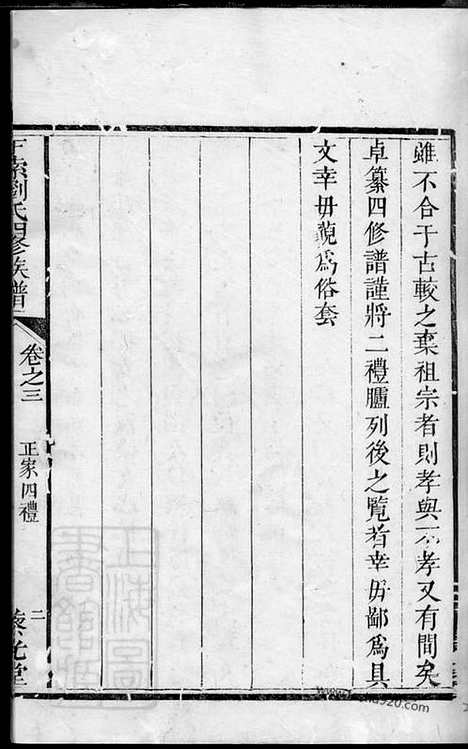 雖不合于古較之棄祖宗者則孝與不孝又有間矣
卓纂四修譜謹將二禮臚列後之覽者幸毋鄙為具
文幸毋藐為俗套
劉氏四修族譜
卷之三
正家四禮
二
上海圖書館藏